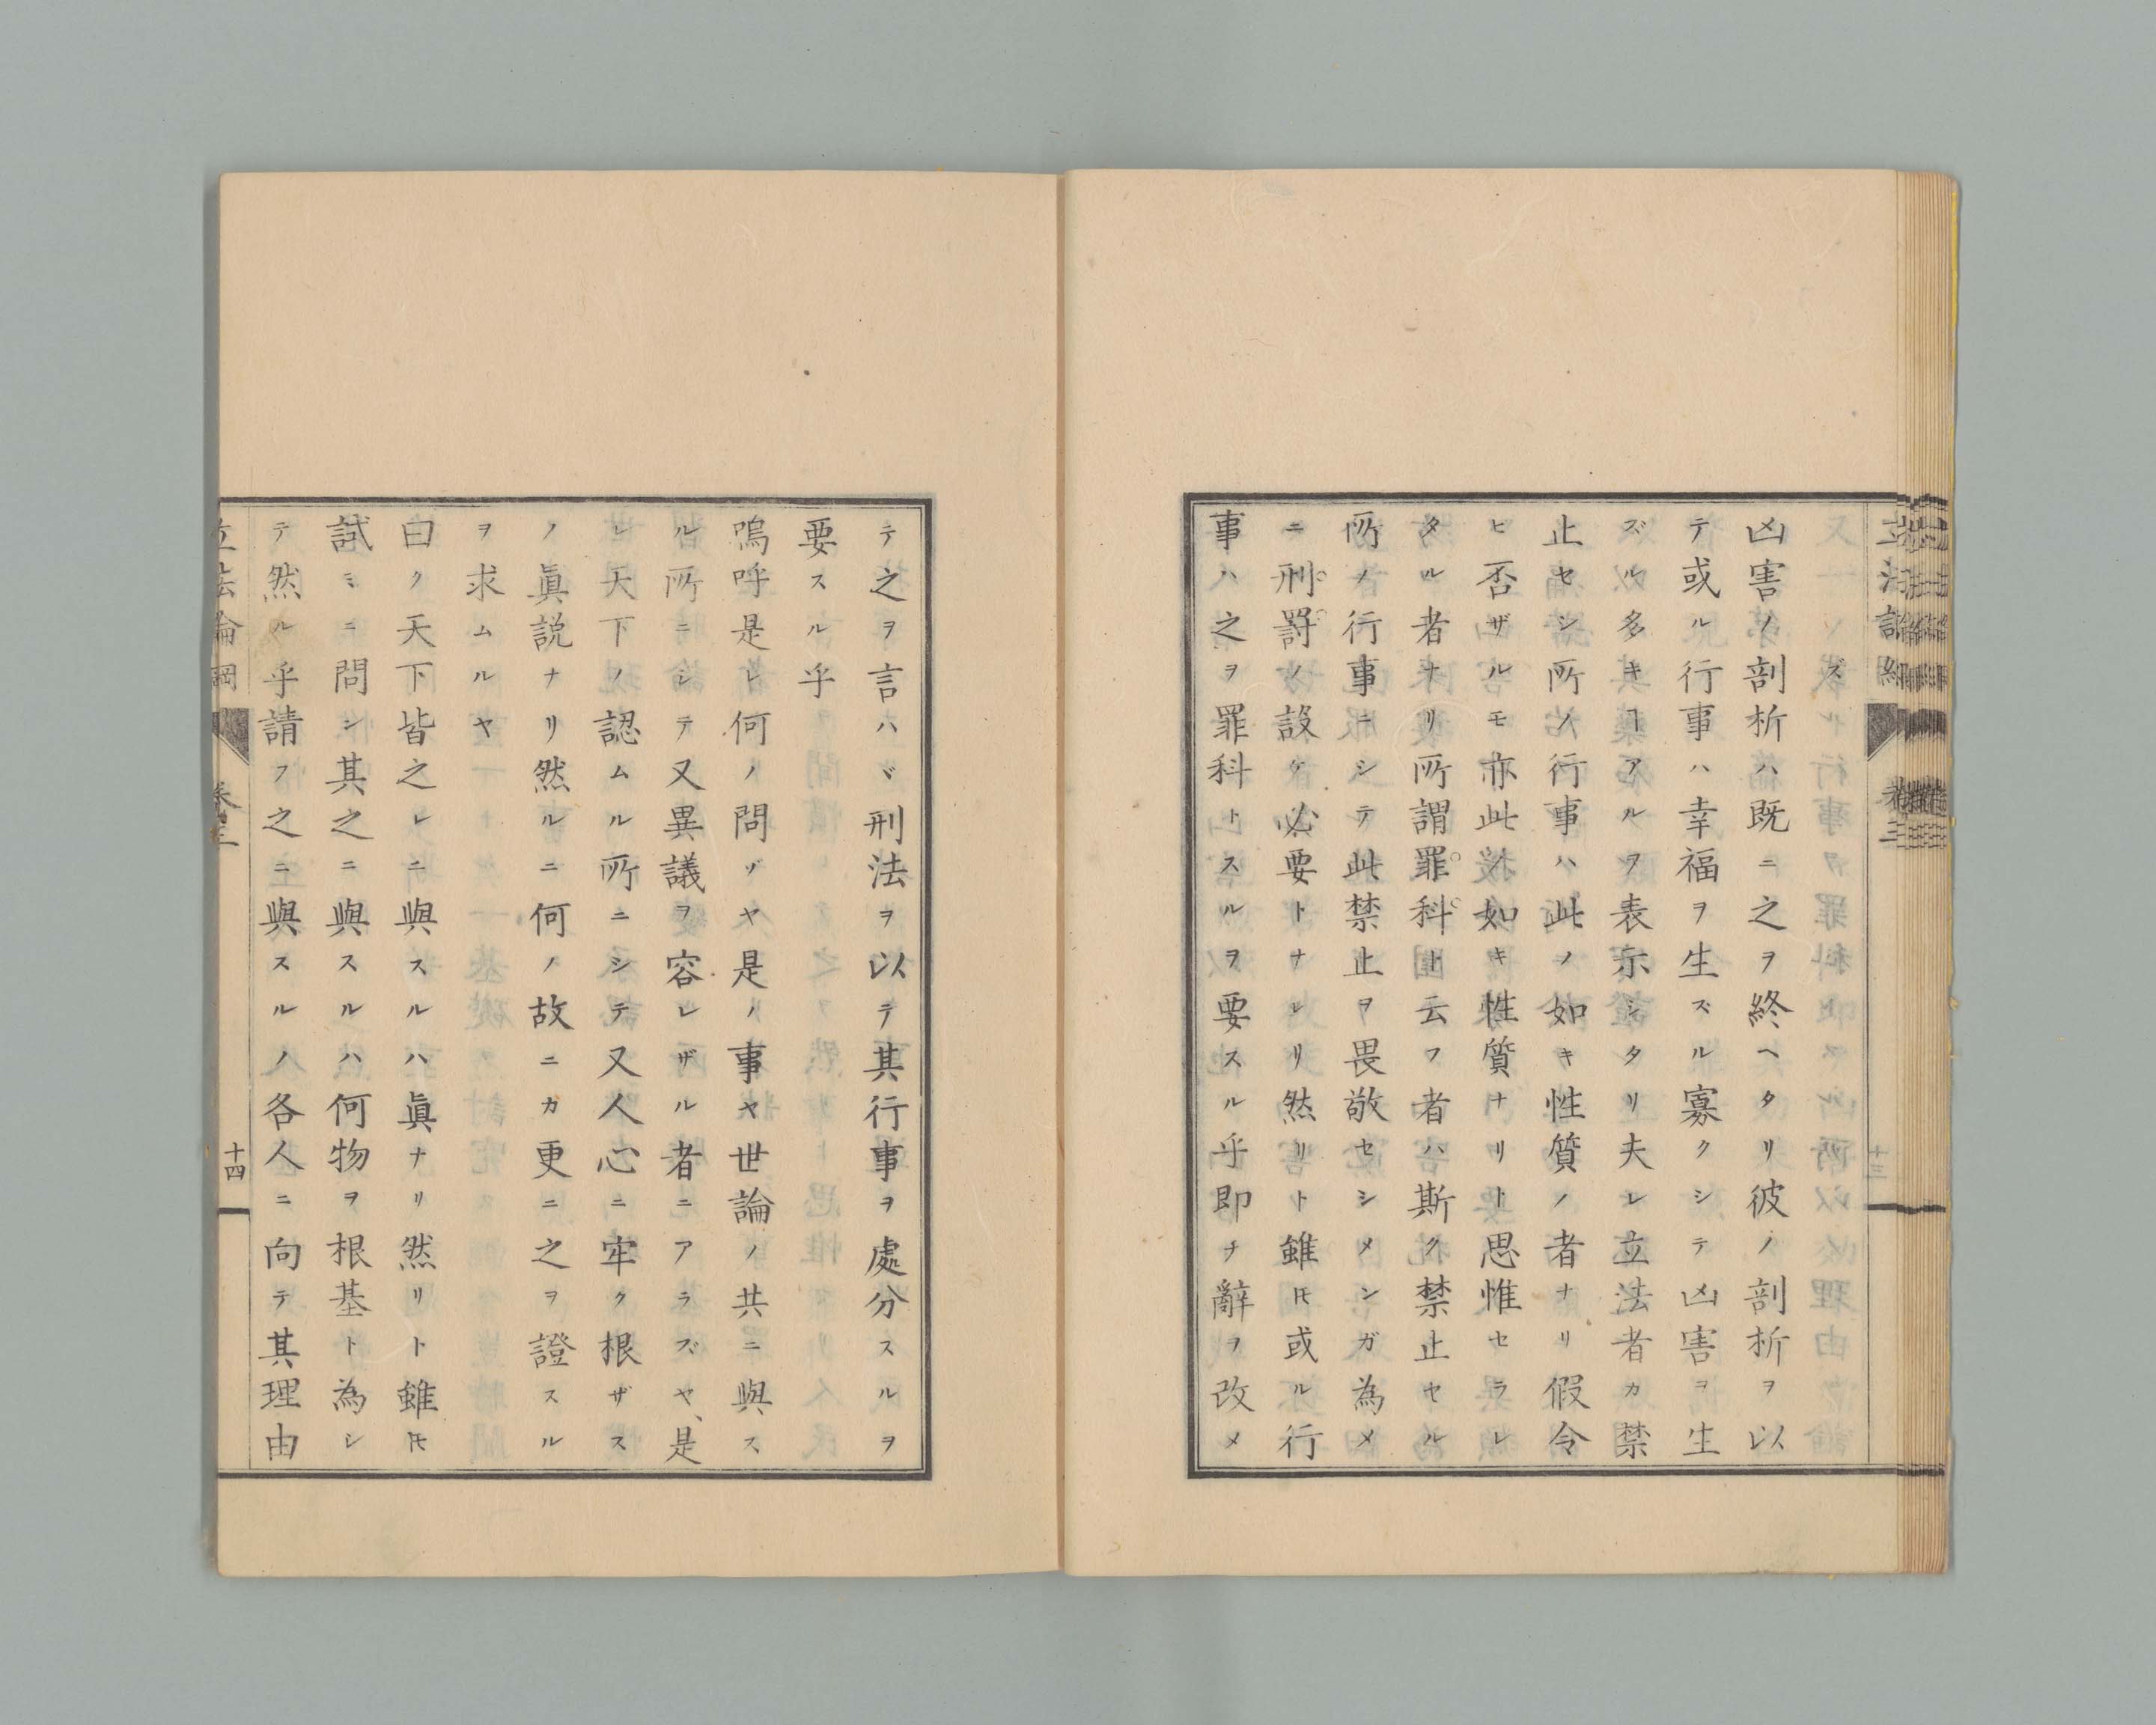 ズ
凶害ノ剖析ハ既ニ之ヲ終ヘタリ彼ノ剖析ヲ以
テ或ル行事ハ幸福ヲ生ズル寡クシテ凶害ヲ生
ズル多キヿアルヲ表示シタリ夫レ立法者カ禁
止セシ所ノ行事ハ此ノ如キ性質ノ者ナリ假令
ヒ否ザルモ亦此如キ性質ナリト思惟セラレ
タル者ナリ所謂罪科ト云フ者ハ斯ク禁止セル
所ノ行事ニシテ此禁止ヲ畏敬セシメンガ為メ
ニ刑罸ノ設ケ必要トナレリ然リト雖𪜈或ル行
事ハ之ヲ罪科トスルヲ要スル乎即チ辭ヲ改メ
テ之ヲ言ハヾ刑法ヲ以テ其行事ヲ處分スルヲ
要スル乎
嗚呼是レ何ノ問ゾヤ是ノ事ヤ世論ノ共ニ與ス
ル所ニシテ又異議ヲ容レザル者ニアラズヤ、是
レ天下ノ認ムル所ニシテ又人心ニ牢ク根ザス
ノ眞説ナリ然ルニ何ノ故ニカ更ニ之ヲ證スル
ヲ求ムルヤ
曰ク天下皆之レニ與スルハ眞ナリ然リト雖𪜈
試ミニ問シ其之ニ與スルハ何物ヲ根基ト為シ
テ然ル乎請フ之ニ與スルノ各人ニ向テ其理由
立法論綱 卷三 十四